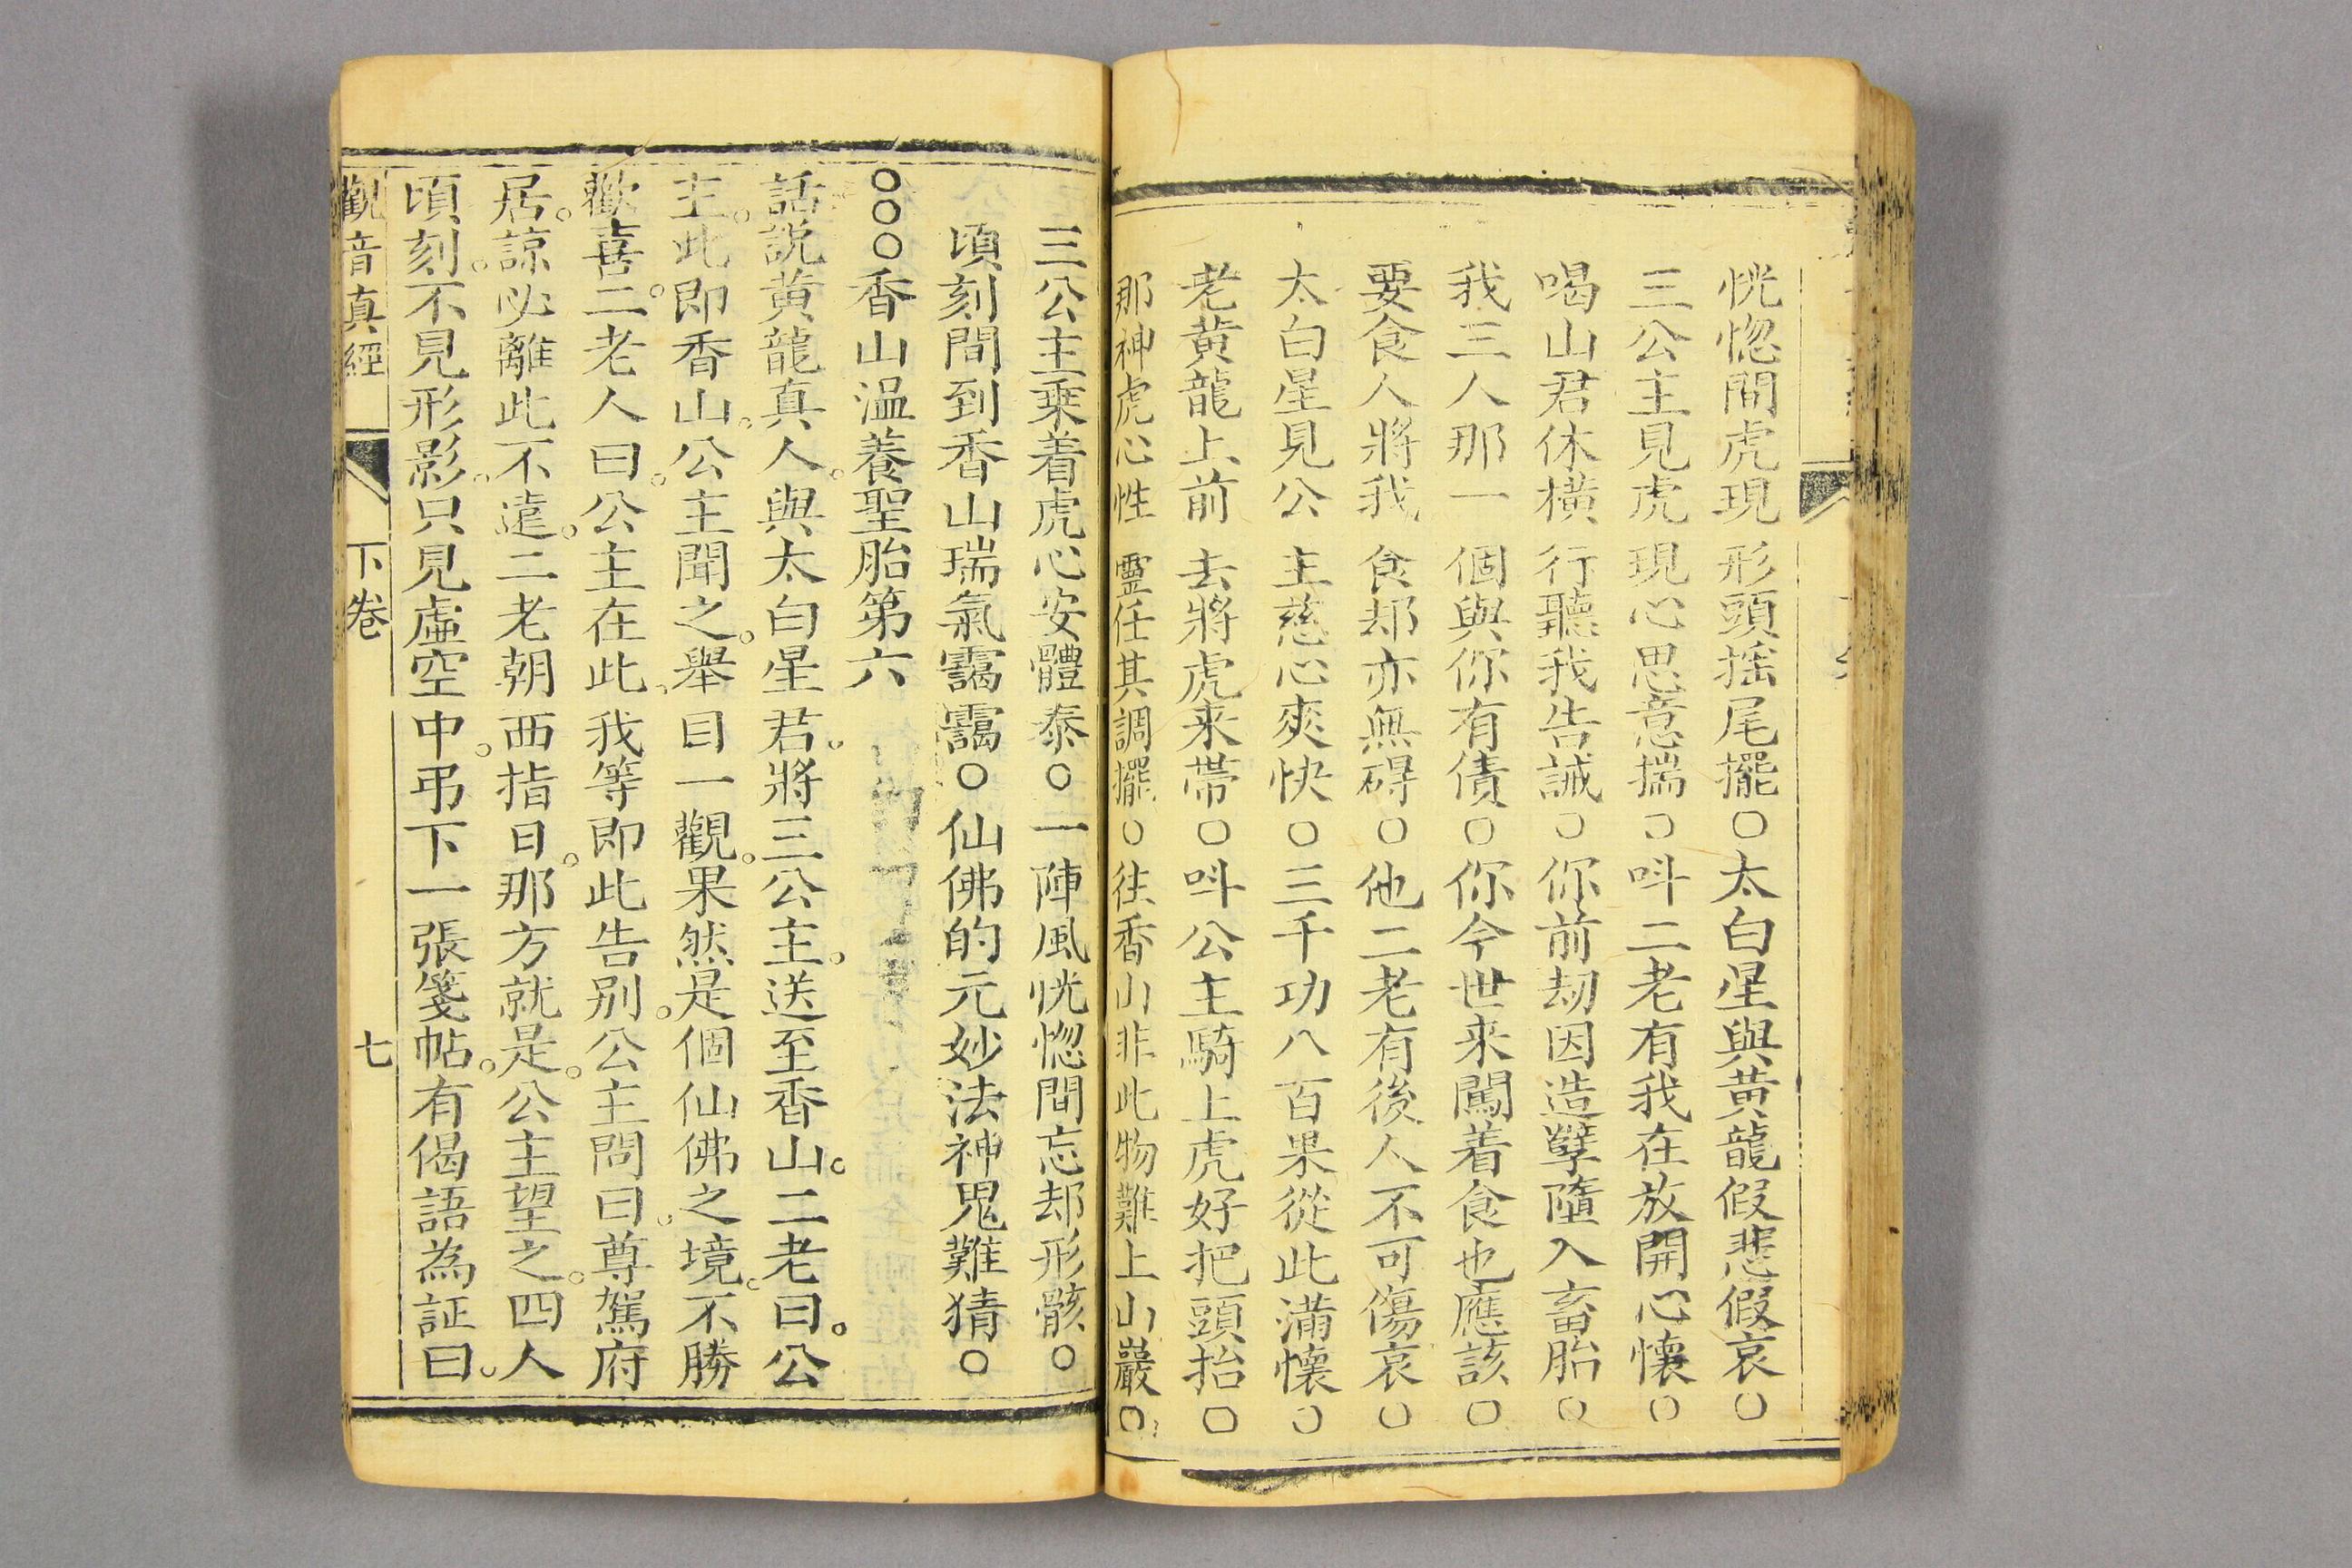 恍惚間虎現形頭摇尾擺○太白星與黄龍假悲假哀○
三公主見虎現心思意揣○呌二老有我在放開心懷○
喝山君休橫行聽我告誡○你前刼因造孽墮入畜胎○
我三人那一個與你有債○你今世来闖着食也應該○
要食人將我食却亦無碍○他二老有後人不可傷哀○
太白星見公主慈心爽快○三千功八百果從此滿懷○
老黄龍上前去將虎来帶○呌公主騎上虎好把頭抬○
那神虎心性靈任其調擺○往香山非此物難上山巖○
三公主乗着虎心安體泰○一陣風恍惚間忘却形骸○
頃刻間到香山瑞氣靄靄○仙佛的元妙法神鬼難猜○
○○○香山温養聖胎第六
話説黄龍真人。與太白星君。將三公主。送至香山。二老曰。公
主。此即香山。公主聞之。舉目一觀。果然是個仙佛之境。不勝
歡喜。二老人曰。公主在此。我等即此告别。公主問曰。尊駕府
居。諒必離此不遠。二老朝西指曰。那方就是。公主望之。四人
頃刻。不見形影。只見虛空中。弔下一張箋帖。有偈語為証曰。
觀音真經 下卷 七